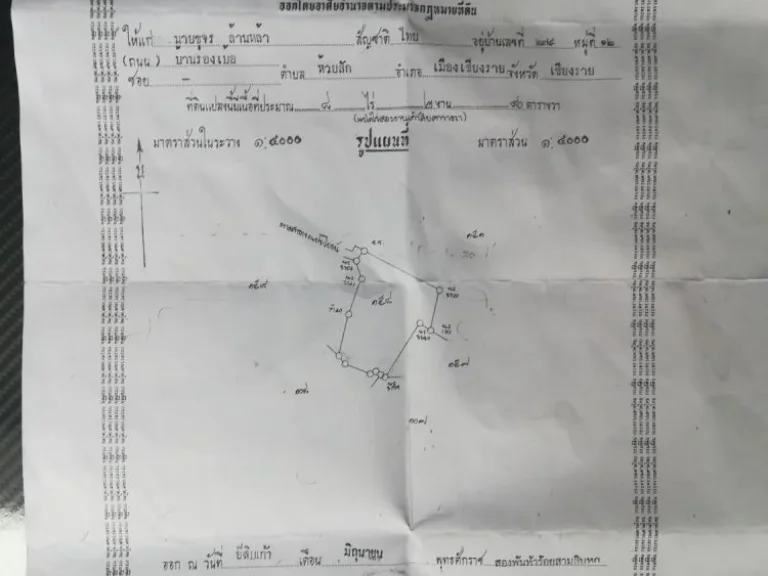 ออกโดยอาศัยอำนาจตามประมวลกฎหมายที่ดิน
ให้แก่ นายขจร ล้านหล้า สัญชาติ ไทย อยู่บ้านเลขที่ ๒๙๘ หมู่ที่ ๑๒
(ถนน) บ้านร่องเบ้อ
ซอย - ตำบล ห้วยสัก อำเภอ เมืองเชียงราย จังหวัด เชียงราย
ที่ดินแปลงนี้มีเนื้อที่ประมาณ ๘ ไร่ ๒ งาน ๙๐ ตารางวา
มาตราส่วนในระวาง ๑:๕๐๐๐ รูปแผนที่ มาตราส่วน ๑:๕๐๐๐
น
๑๕๓
๑๕๙
๑๕๘
๑๕๗
๑๐๗
ออก ณ วันที่ ยี่สิบเก้า เดือน มิถุนายน พุทธศักราช สองพันห้าร้อยสามสิบหก